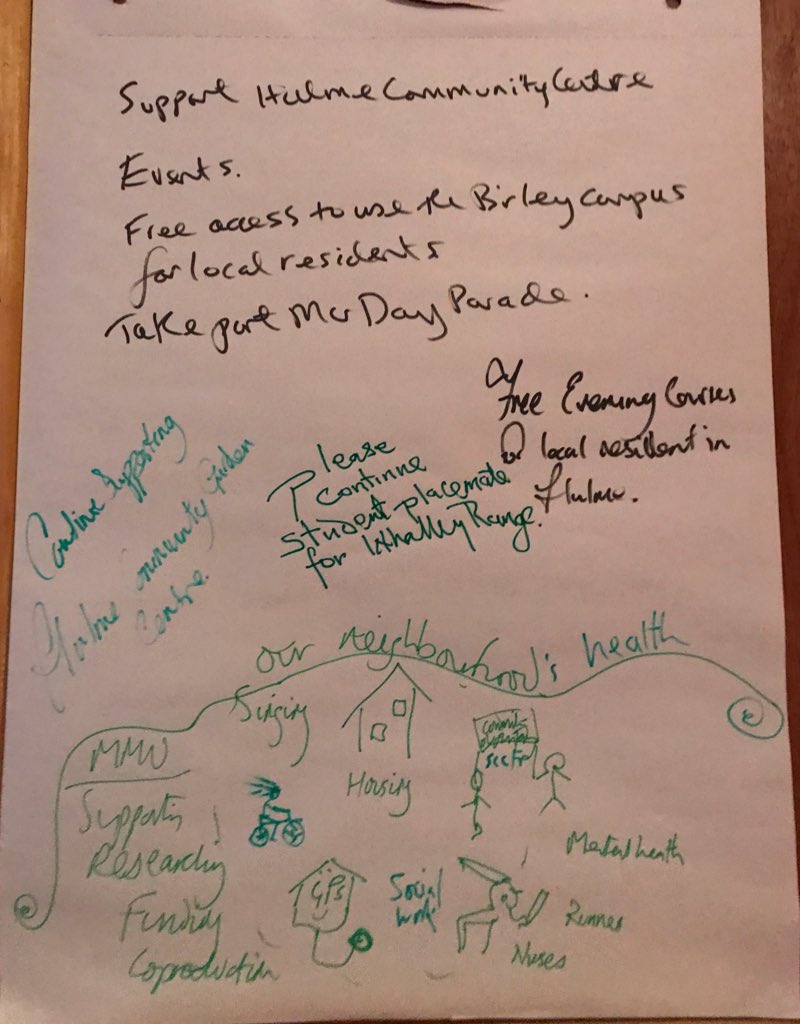 Support Hulme Community Centre
Events.
Free access to use the Birley campus
for local residents
Take part Mcr Day Parade.
Free Evening Courses
local resident in
Hulme.
Please
continue
student placemate
for Whalley Range.
Continue Supporting
Hulme Community Garden
Centre.
our neighbourhood's health
Singing
MMU
Housing
sector
Supporting
Researching
Mental health
Funding
GPs
Social
work
Runner
Coproduction
Nurses